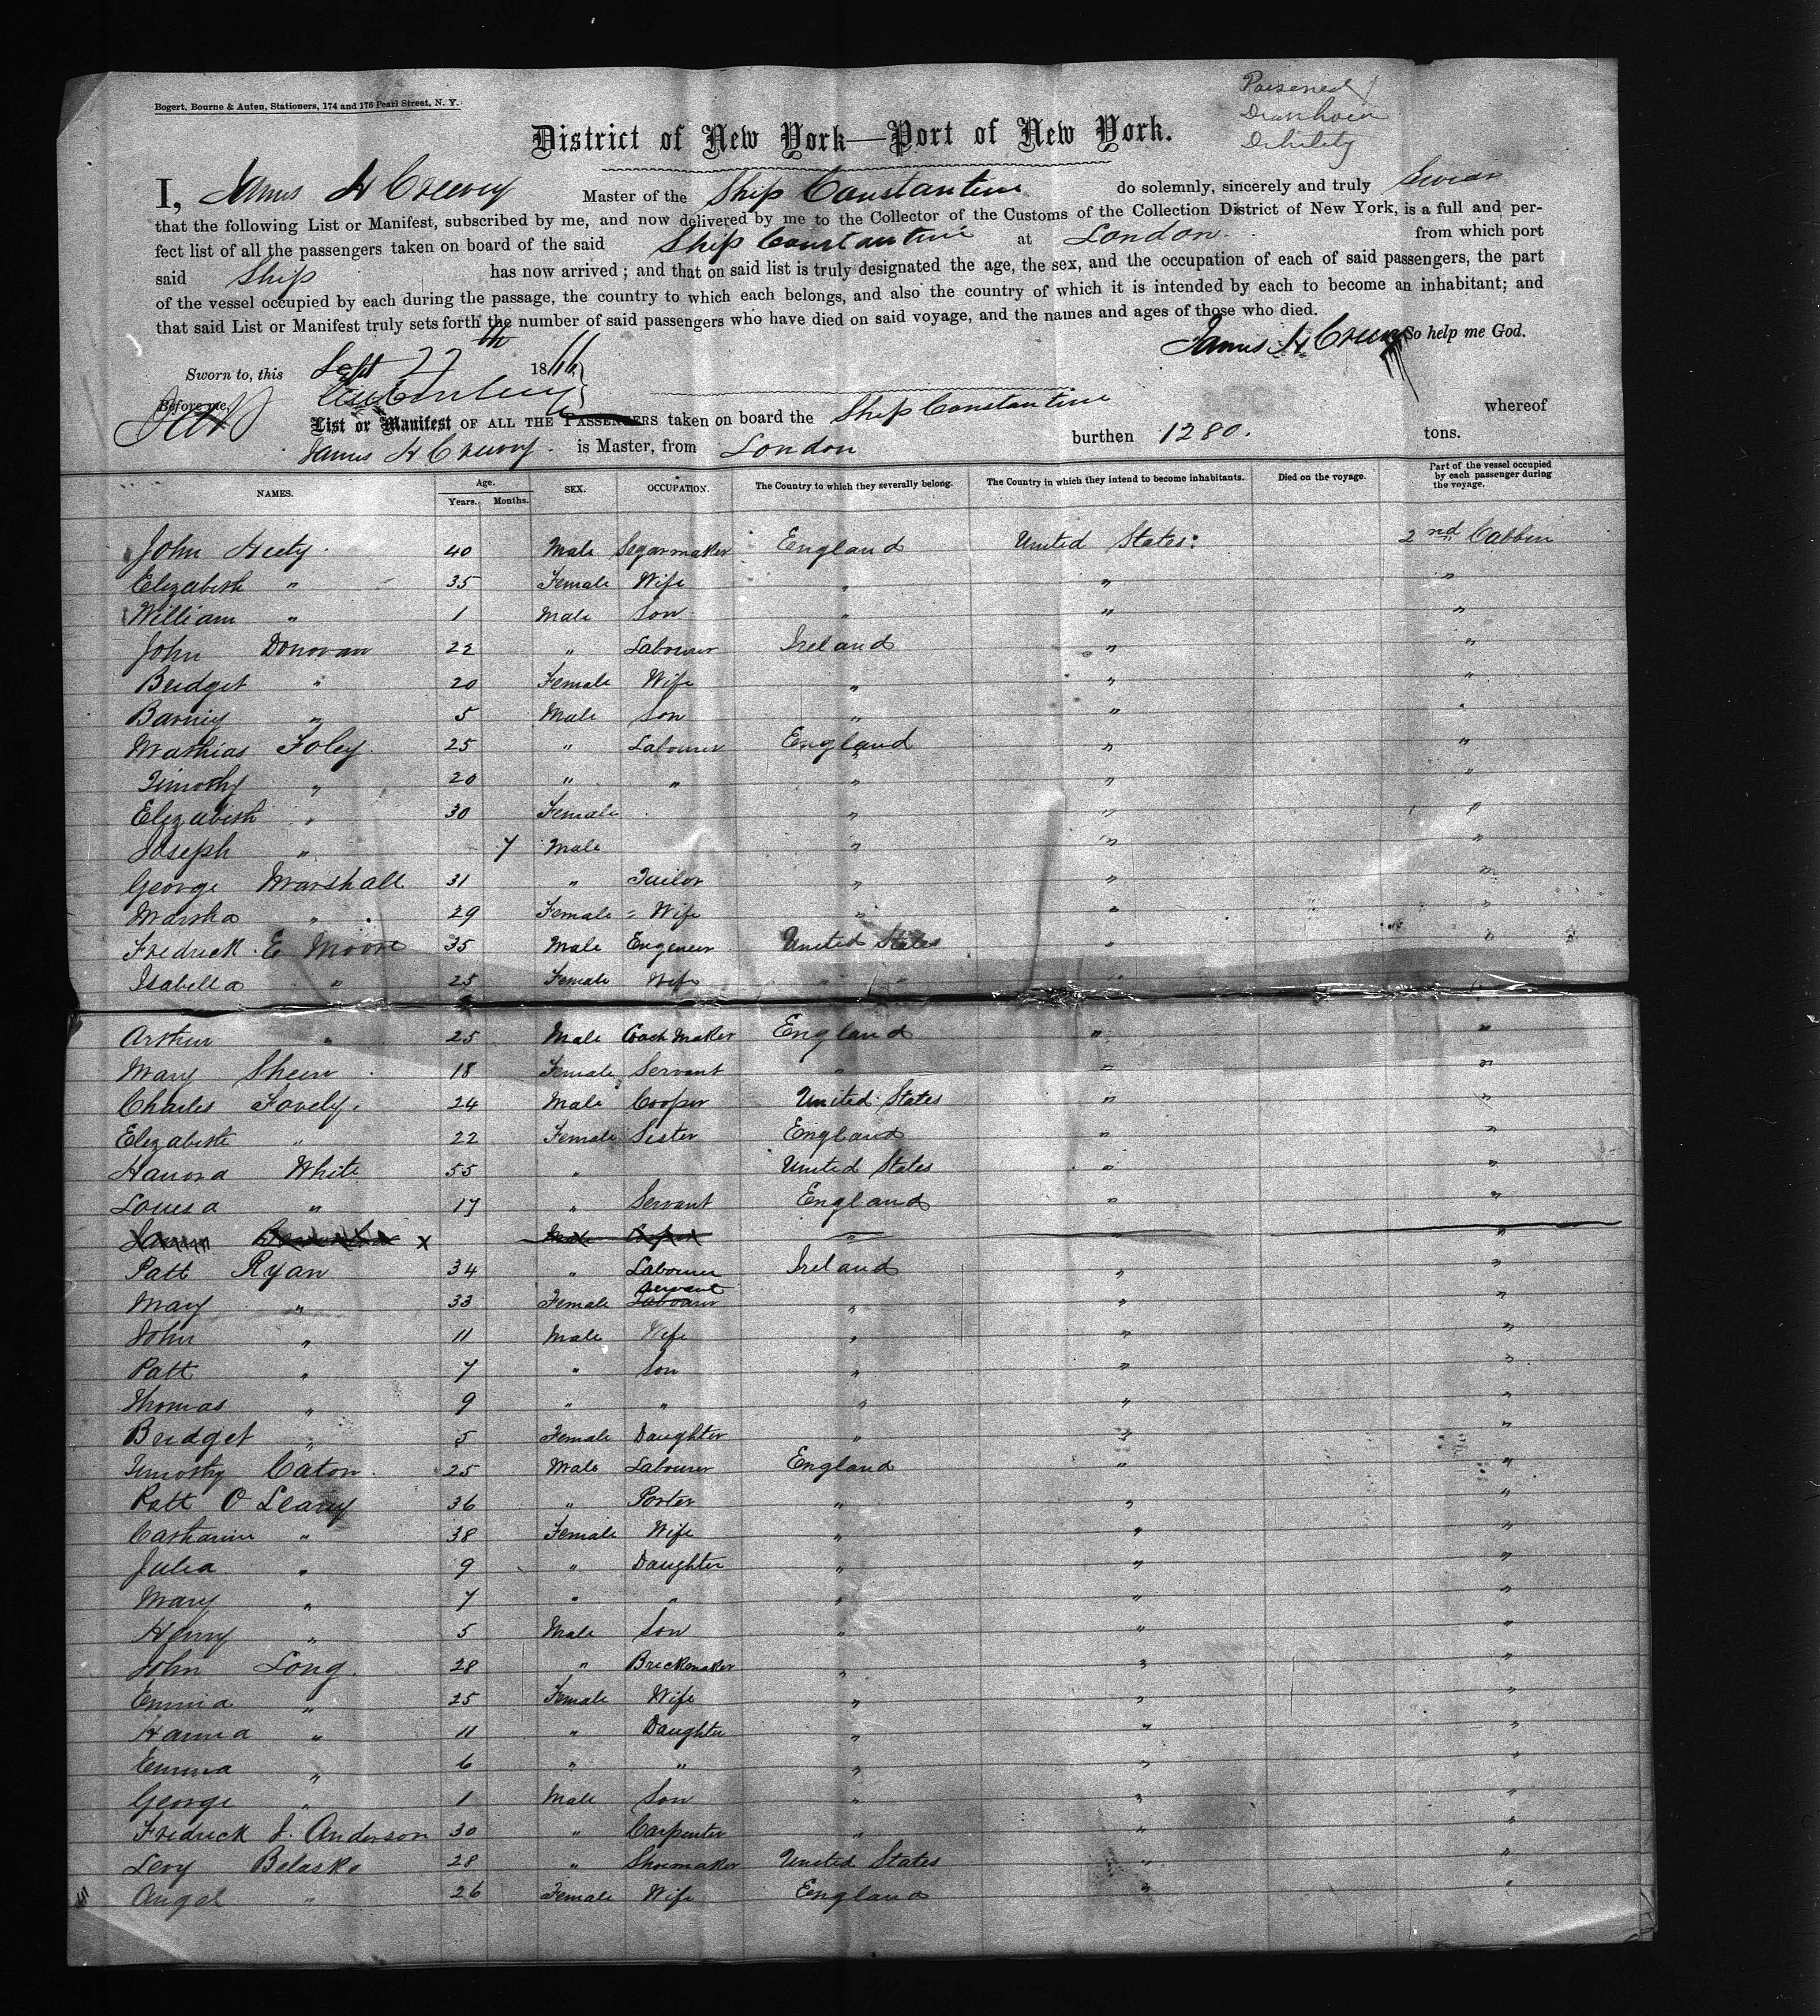 Bogert, Bourne & Auten, Stationers, 174 and 176 Pearl Street, N. Y.
Poisened
Diarrhoea
Debility
District of New York—Port of New York.
I, James H Creevey Master of the Ship Constantine do solemnly, sincerely and truly Swear
that the following List or Manifest, subscribed by me, and now delivered by me to the Collector of the Customs of the Collection District of New York, is a full and per-
fect list of all the passengers taken on board of the said Ship Constantine at London from which port
said Ship has now arrived; and that on said list is truly designated the age, the sex, and the occupation of each of said passengers, the part
of the vessel occupied by each during the passage, the country to which each belongs, and also the country of which it is intended by each to become an inhabitant; and
that said List or Manifest truly sets forth the number of said passengers who have died on said voyage, and the names and ages of those who died.
James H Creevey So help me God.
Sworn to, this Sept 22th 1866
Before me,
List or Manifest OF ALL THE PASSENGERS taken on board the Ship Constantine whereof
James H Creevey is Master, from London burthen 1280. tons.
NAMES. Age. Years. Months. SEX. OCCUPATION. The Country to which they severally belong. The Country in which they intend to become inhabitants. Died on the voyage. Part of the vessel occupied by each passenger during the voyage.
John Heety 40 Male Segarmaker England United States 2nd Cabbin
Elizabeth " 35 Female Wife " " "
William " 1 Male Son " " "
John Donovan 22 " Labourer Ireland " "
Bridget " 20 Female Wife " " "
Barney " 5 Male Son " " "
Mathias Foley 25 " Labourer England " "
Timothy " 20 " " " " "
Elizabeth " 30 Female " " "
Joseph " 7 Male " " "
George Marshall 31 " Tailor " " "
Marsha " 29 Female Wife " " "
Fredrick E Moore 35 Male Engeneer United States " "
Isabella " 25 Female Wife " " " "
Arthur " 25 Male Coach Maker England " "
Mary Sheen 18 Female Servant " " "
Charles Fovely 24 Male Cooper United States " "
Elizabeth " 22 Female Sister England " "
Hanora White 55 " United States " "
Louisa " 17 " Servant England " "
X " " "
Patt Ryan 34 " Labourer Ireland " "
Mary " 33 Female Labourer Servant " " "
John " 11 Male Wife " " "
Patt " 7 " Son " " "
Thomas " 9 " " " " "
Bridget " 5 Female Daughter " " "
Timothy Caton 25 Male Labourer England " "
Patt O Leary 36 " Porter " " "
Catharine " 38 Female Wife " " "
Julia " 9 " Daughter " " "
Mary " 7 " " " " "
Henry " 5 Male Son " " "
John Long 28 " Brickmaker " " "
Emma " 25 Female Wife " " "
Hanna " 11 " Daughter " " "
Emma " 6 " " " " "
George " 1 Male Son " " "
Fredrick J. Anderson 30 " Carpenter " " "
Levy Belaske 28 " Shoemaker United States " "
Angel " 26 Female Wife England " "